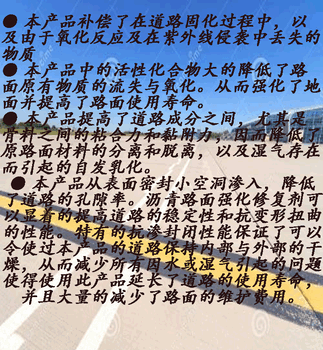 ● 本产品补偿了在道路固化过程中，以
及由于氧化反应及在紫外线侵袭中丢失的
物质
● 本产品中的活性化合物大的降低了路
面原有物质的流失与氧化。从而强化了地
面并提高了路面使用寿命。
● 本产品提高了道路成分之间，尤其是
骨料之间的粘合力和黏附力，因而降低了
原路面材料的分离和脱离，以及湿气存在
而引起的自发乳化。
● 本产品从表面密封小空洞渗入，降低
了道路的孔隙率。沥青路面强化修复剂可
以显着的提高道路的稳定性和抗变形扭曲
的性能。特有的抗渗封闭性能保证了可以
令使过本产品的道路保持内部与外部的干
燥，从而减少所有因水或湿气引起的问题
使得使用此产品延长了道路的使用寿命，
并且大量的减少了路面的维护费用。